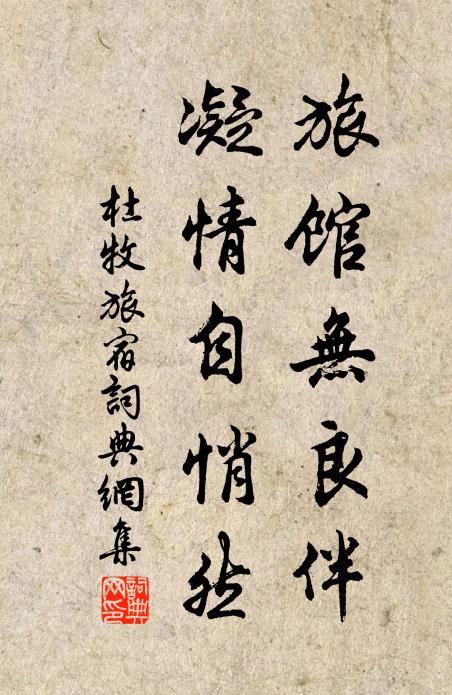 旅館無良伴
凝情自悄然
杜牧旅宿詞典網集
詞典网印